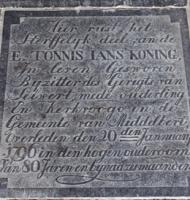 Hier rust het
Sterfelyk deel van de
E. TONNIS IANS KONING
In leven geweren
Byzitter des Gerigts van
Ouderling
En Kerkvoogt in de
Gemeente van Midd
Overleden den 20 sten January
1790 in den hogen ouderdom
Van 80 Jaren en by na maanden